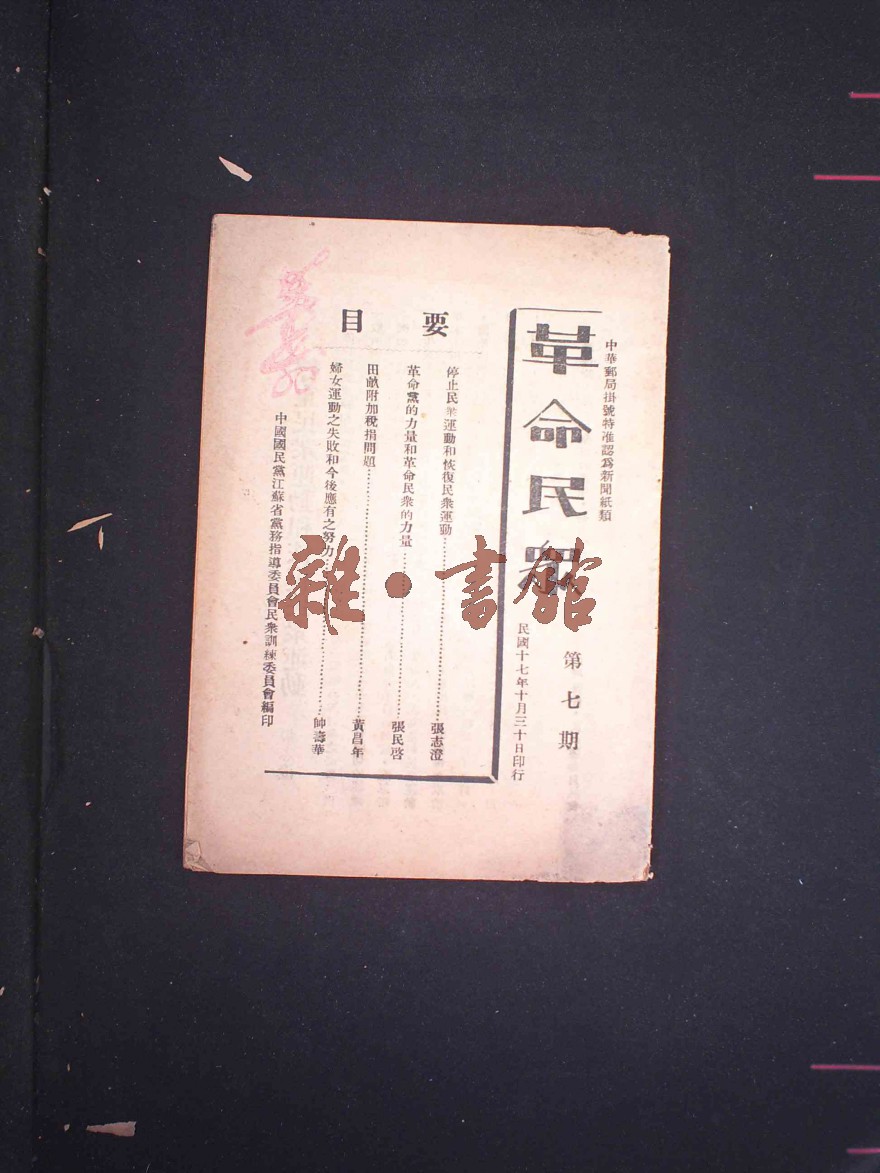 中華郵局掛號特准認爲新聞紙類
革命民衆
第七期
民國十七年十月三十日印行
要目
停止民衆運動和恢復民衆運動……張志澄
革命黨的力量和革命民衆的力量……張民啓
田畝附加稅捐問題……黃昌年
婦女運動之失敗和今後應有之努力……帥壽華
中國國民黨江蘇省黨務指導委員會民衆訓練委員會編印
雜·書館